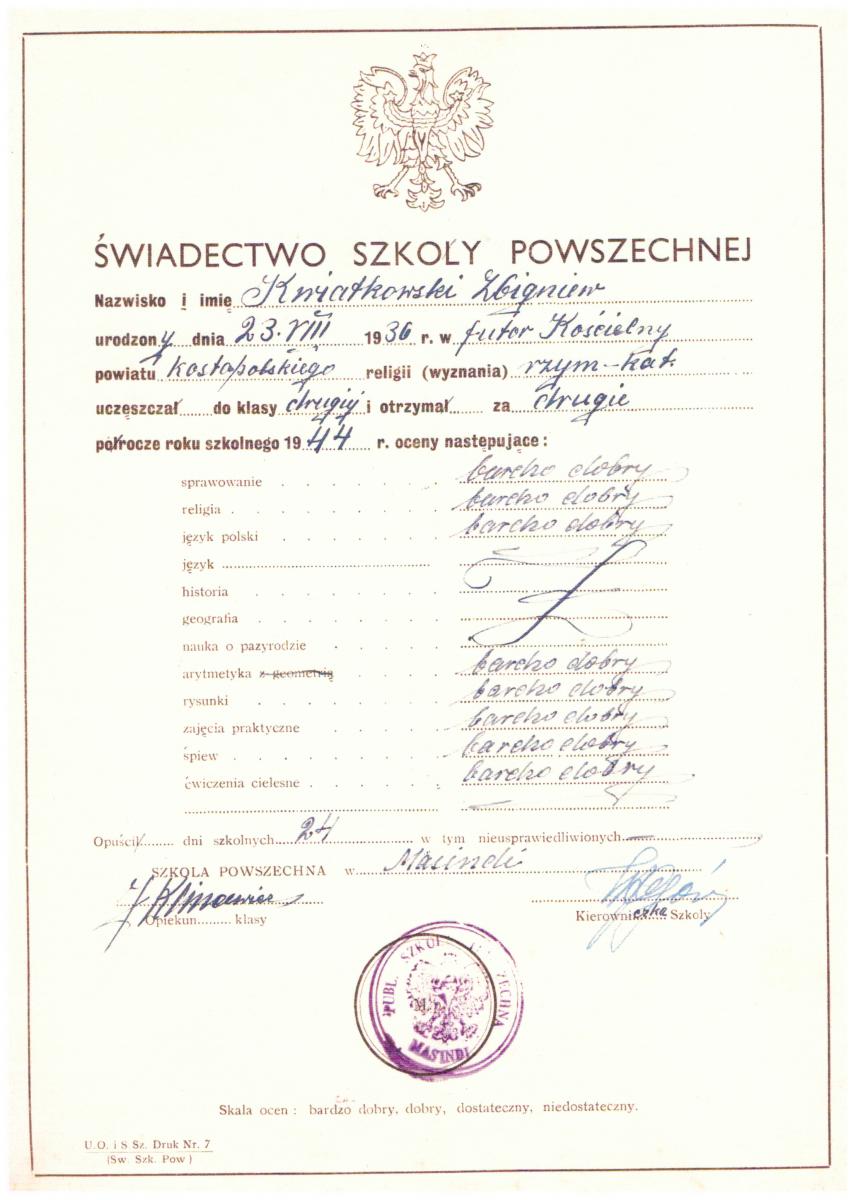 ŚWIADECTWO SZKOŁY POWSZECHNEJ
Nazwisko i imię Kwiatkowski Zbigniew
urodzony dnia 23. VIII 1936 r. w futor Kościelny
powiatu Kostopolskiego religii (wyznania) rzym-kat.
uczęszczał do klasy drugiej i otrzymał za drugie
półrocze roku szkolnego 1944 r. oceny następujące:
sprawowanie bardzo dobry
religia bardzo dobry
język polski bardzo dobry
język
historia
geografia
nauka o pazyrodzie
arytmetyka z geometrią bardzo dobry
rysunki bardzo dobry
zajęcia praktyczne bardzo dobry
śpiew bardzo dobry
ćwiczenia cielesne bardzo dobry
Opuścił dni szkolnych 24 w tym nieusprawiedliwionych —
SZKOLA POWSZECHNA w Masindi
Opiekun klasy
Kierowniczka Szkoły
PUBL. SZKOŁA ZECHNA
MASINDI
Skala ocen : bardzo dobry, dobry, dostateczny, niedostateczny.
U.O. i S Sz. Druk Nr. 7
(Sw. Szk. Pow )